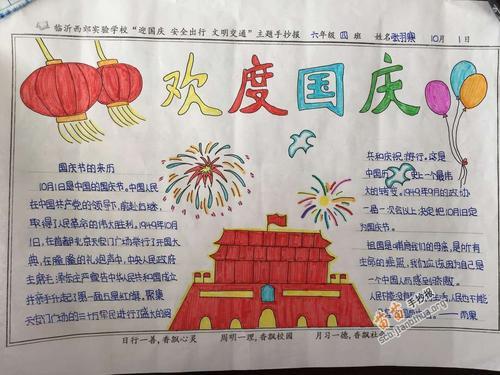 临沂西郊实验学校“迎国庆 安全出行 文明交通”主题手抄报 六年级 四 班 姓名 10月 1日
欢度国庆
国庆节的来历
10月1日是中国的国庆节。中国人民
在中国共产党的领导下,前赴后继,
取得了人民革命的伟大胜利。1949年10月
1日,在首都北京天安门广场举行了开国大
典,在隆隆的礼炮声中,中央人民政府
主席毛泽东庄严宣告中华人民共和国成立
并亲手升起了第一面五星红旗,聚集
天安门广场的三十万军民进行了盛大的阅
兵和庆祝游行。这是
中国历史上一个最伟
大的转变。1949年9月的政协
一届一次会议上决定把10月1日定
为国庆节。
祖国是哺育我们的母亲,是所有
生命的摇篮,我们应该因为自己是
一个中国人而感到骄傲。
人民不能没有面包而生活,人民也不能
没有祖国 ——雨果
日行一善,香飘心灵 周明一理,香飘校园 月习一德,香飘社
苗苗手抄报
scb.jianhua.org